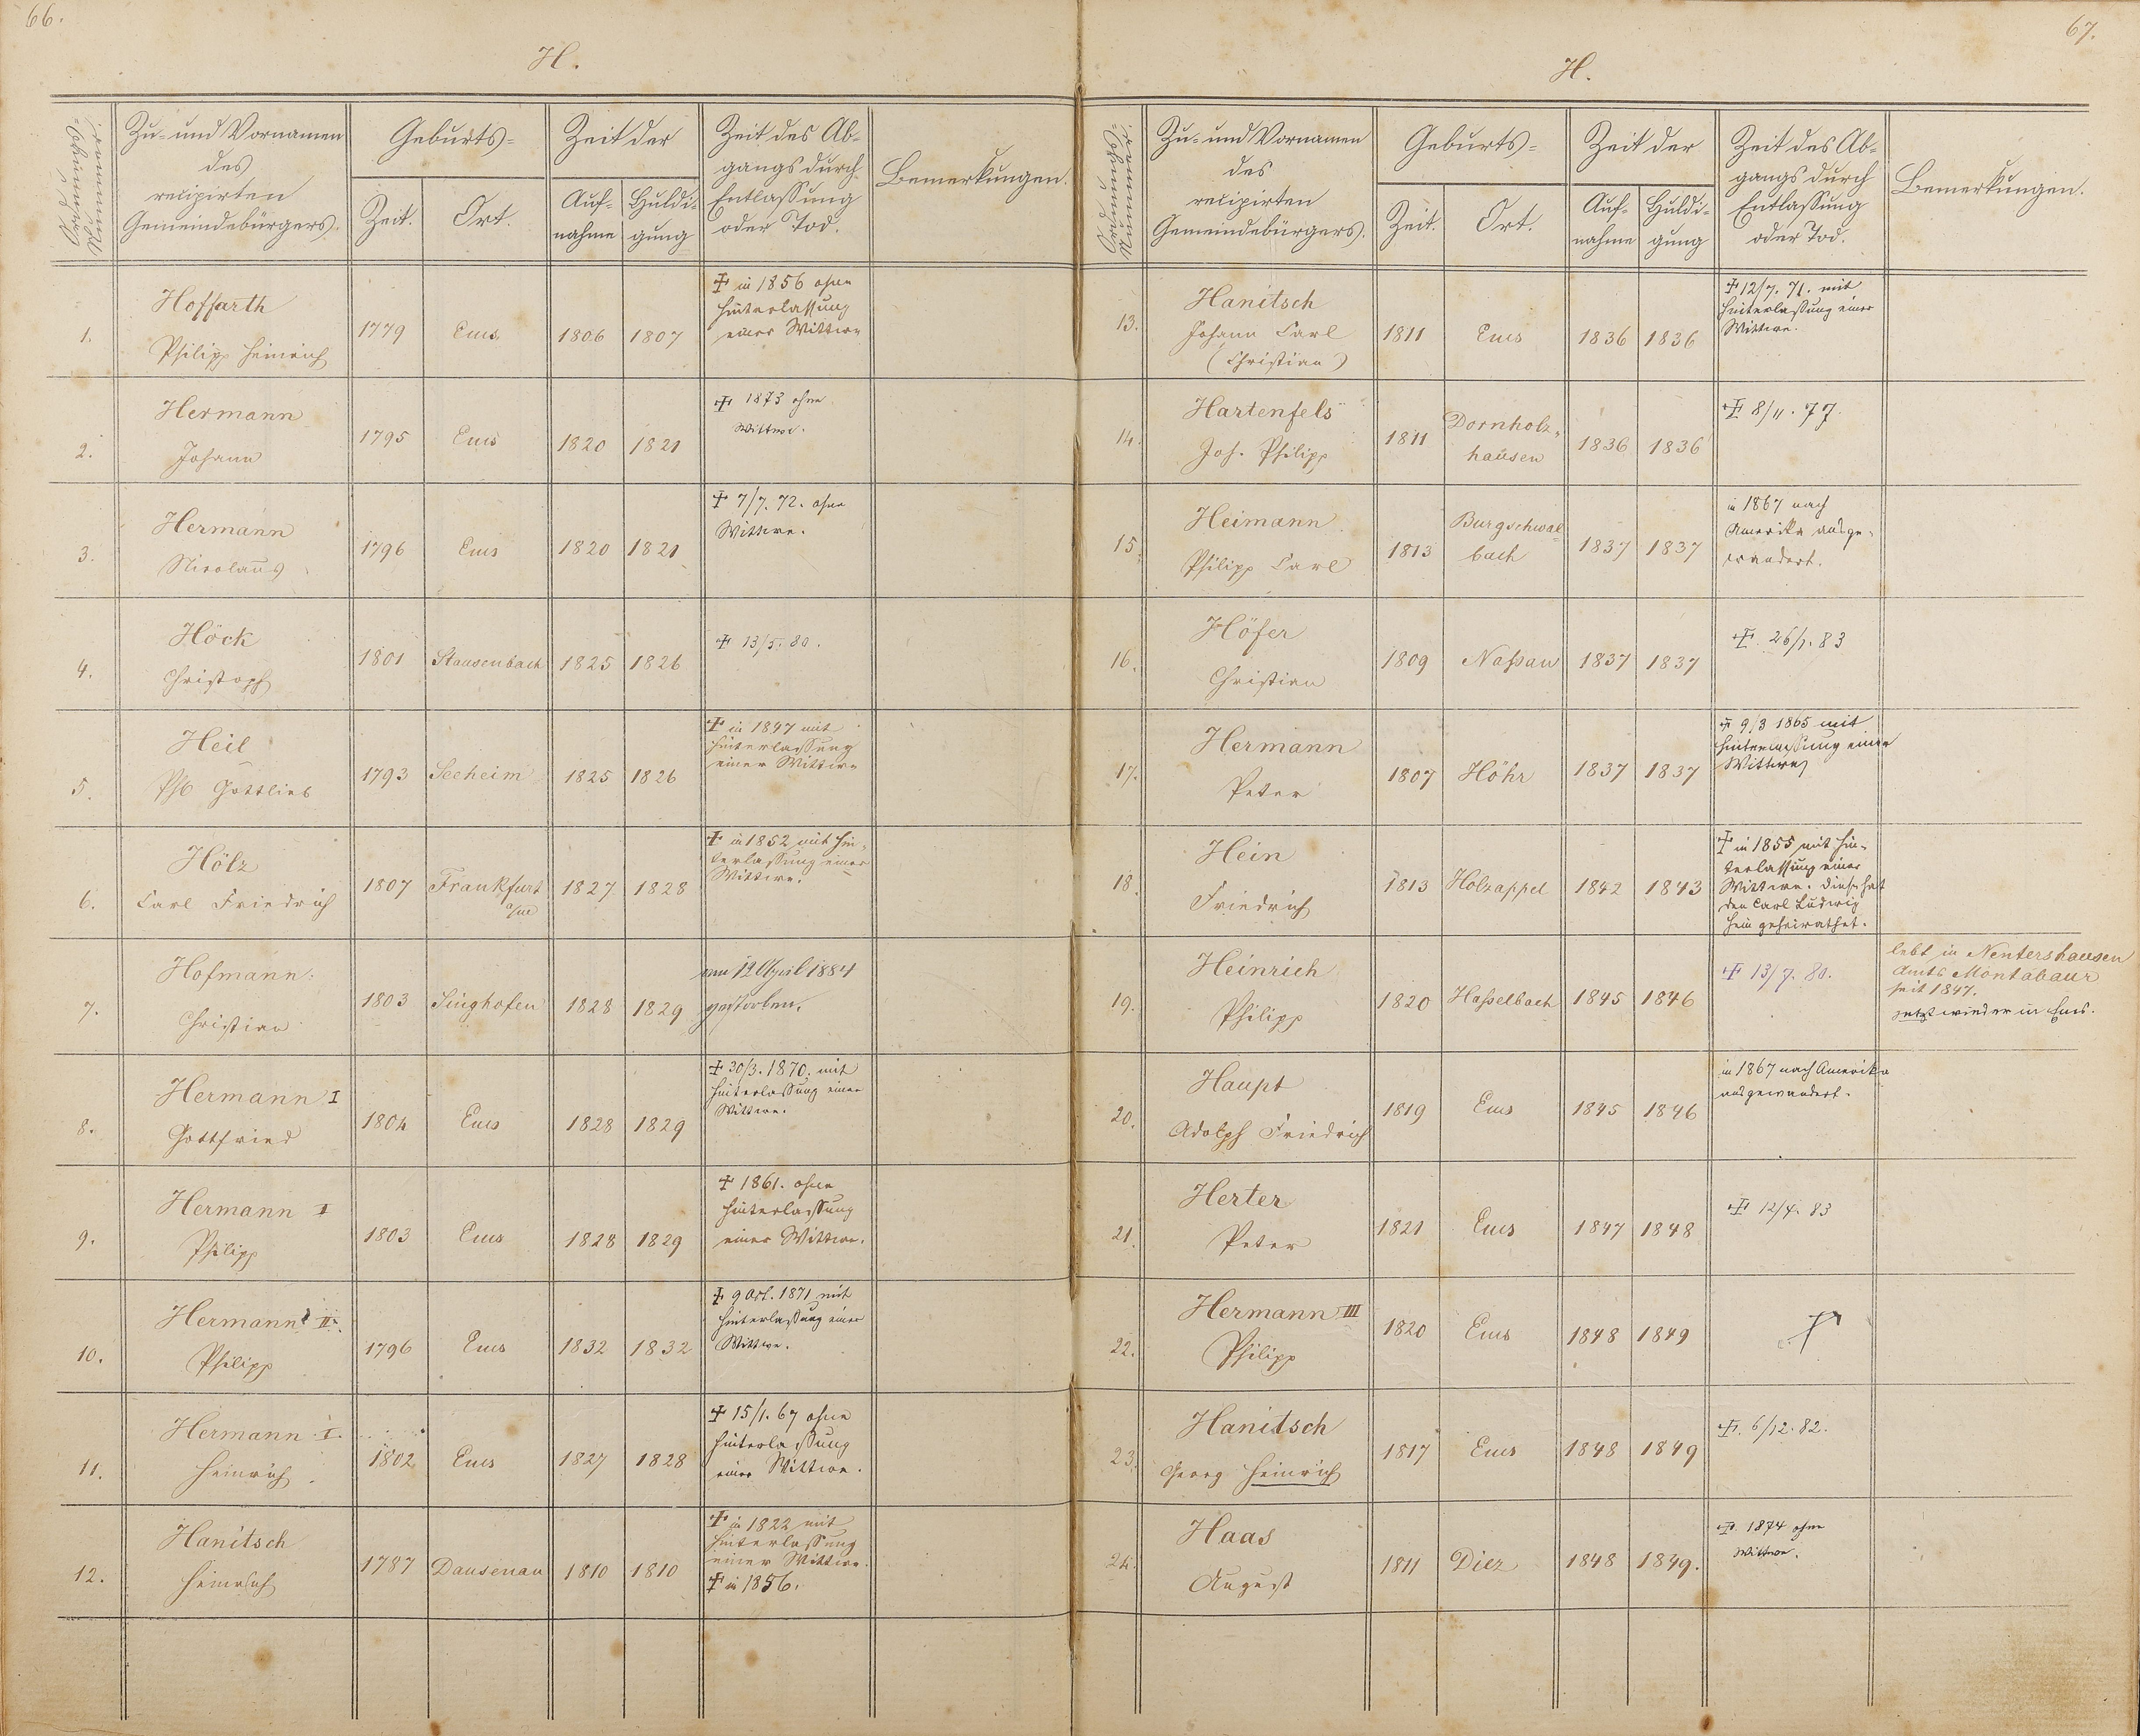 66.
H.
Ordnungs-
Nummer.
Zu- und Vornamen
des
recipirten
Gemeindebürgers.
Geburts-
Zeit.
Ort.
Zeit der
Auf-
nahme
Huldi-
gung
Zeit des Ab-
gangs durch
Entlassung
oder Tod.
Bemerkungen.
1.
Hoffarth
Philipp Heinrich
1779
Ems
1806
1807
‡ in 1856 ohne
Hinterlassung
einer Wittwe
2.
Hermann
Johann
1795
Ems
1820
1821
‡ 1873 ohne
Wittwe.
3.
Hermann
Nicolaus
1796
Ems
1820
1821
‡ 7/7. 72. ohne
Wittwe.
4.
Höck
Christoph
1801
Stausenbach
1825
1826
‡ 13/5. 80.
5.
Heil
Ph. Gottlieb
1793
Seeheim
1825
1826
‡ in 1847 mit
Hinterlassung
einer Wittwe
6.
Hölz
Carl Friedrich
1807
Frankfurt
a/m
1827
1828
‡ in 1852 mit Hin-
terlassung einer
Wittwe.
7.
Hofmann.
Christian
1803
Singhofen
1828
1829
am 12 April 1884
gestorben.
8.
Hermann I
Gottfried
1804
Ems
1828
1829
‡ 30/3. 1870. mit
Hinterlassung einer
Wittwe.
9.
Hermann I
Philipp
1803
Ems
1828
1829
‡ 1861. ohne
Hinterlassung
einer Wittwe.
10.
Hermann II.
Philipp
1796
Ems
1832
1832
‡ 9 Oct. 1871 mit
Hinterlassung einer
Wittwe.
11.
Hermann I.
Heinrich.
1802
Ems
1827
1828
‡ 15/1. 67 ohne
Hinterlassung
einer Wittwe.
12.
Hanitsch
Heinrich
1787
Dausenau
1810
1810
‡ in 1822 mit
Hinterlassung
einer Wittwe.
‡ in 1856.
67.
H.
Ordnungs-
Nummer.
Zu- und Vornamen
des
recipirten
Gemeindebürgers.
Geburts-
Zeit.
Ort.
Zeit der
Auf-
nahme
Huldi-
gung
Zeit des Ab-
gangs durch
Entlassung
oder Tod.
Bemerkungen.
13.
Hanitsch
Johann Carl
(Christian)
1811
Ems
1836
1836
‡ 12/7. 71. mit
Hinterlaßung einer
Wittwe.
14.
Hartenfels
Joh. Philipp
1811
Dornholz-
hausen
1836
1836
‡ 8/11. 77.
15.
Heimann
Philipp Carl
1813
Burgschwal-
bach
1837
1837
in 1867 nach
Amerika ausge-
wandert.
16.
Höfer
Christian
1809
Naßau
1837
1837
‡ 26/1. 83
17.
Hermann
Peter
1807
Höhr
1837
1837
‡ 9/3 1865 mit
Hinterlassung einer
Wittwe
18.
Hein
Friedrich
1813
Holzappel
1842
1843
‡ in 1855 mit Hin-
terlassung einer
Wittwe. Diese hat
den Carl Ludwig
Hein geheirathet.
19.
Heinrich
Philipp
1820
Haßelbach
1845
1846
‡ 13/7. 80.
lebt in Nentershausen
Amts Montabaur
seit 1847.
jetzt wieder in Ems.
20.
Haupt
Adolph Friedrich
1819
Ems
1845
1846
in 1867 nach Amerika
ausgewandert.
21.
Herter
Peter
1821
Ems
1847
1848
‡ 12/4. 83
22.
Hermann III
Philipp
1820
Ems
1848
1849
†
23.
Hanitsch
Georg Heinrich
1817
Ems
1848
1849
‡. 6/12. 82.
24.
Haas
August
1811
Diez
1848
1849.
‡. 1874 ohne
Wittwe.